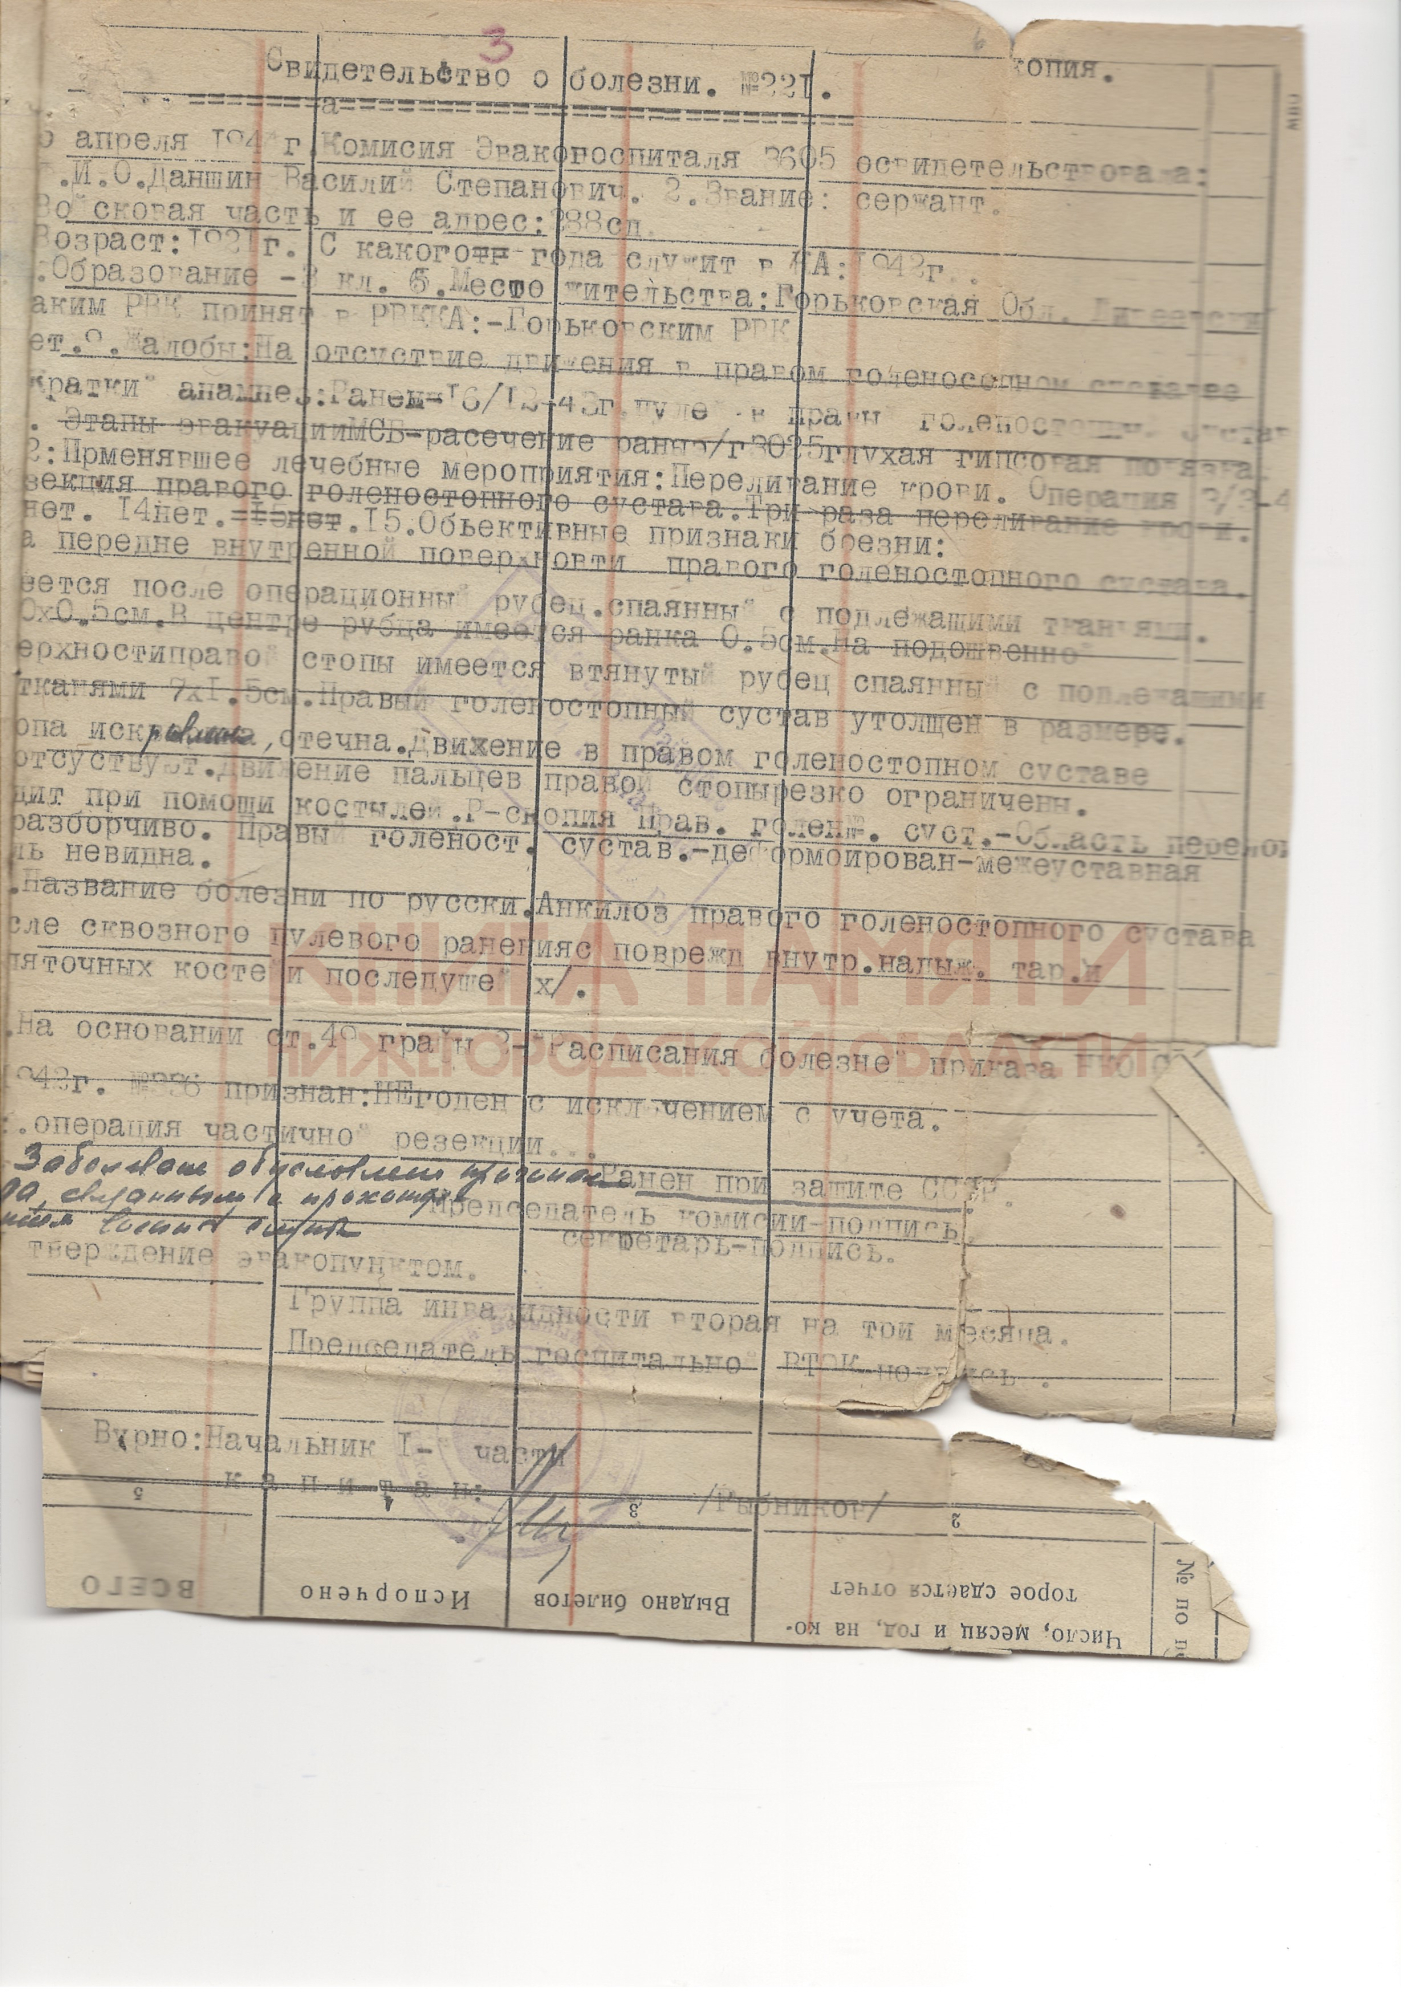 3
Свидетельство о болезни. №221. копия.
апреля 194 г.Комисия Эвакогоспиталя 3605 освидетельствовала:
.И.О.Даншин Василий Степанович. 2.Звание: сержант.
Войсковая часть и ее адрес:288сд.
Возраст:1921г. С какого года служит в КА:1942г.
.Образование -3 кл. 6.Место жительства:Горьковская Обл.
аким РВК принят в РККА:-Горьковским РВК
ет.9.Жалобы:На отсуствие движения в правом голеностопном суставе
Краткий анамнез:Ранен-16/12-43г.пулей в правый голеностопный сустав
. Этапы эвакуацииМСБ-расечение раны,э/г3025глухая гипсовая повязка.
2:Прменявшее лечебные мероприятия:Переливание крови. Операция
зекция правого голеностопного сустава.Три раза переливание крови.
нет. 14нет. 15нет.15.Обьективные признаки боезни:
а передне внутренной поверхновти правого голеностопного сустава.
еется после операционный рубец.спаянный с подлежащими тканьями.
0х0.5см.В центре рубца имеется ранка 0.5см.На подошвенной
ерхностиправой стопы имеется втянутый рубец спаянный с подлежащими
тканями 7х1.5см.Правый голеностопный сустав утолщен в размере.
опа искривлена,отечна.Движение в правом голеностопном суставе
отсуствует.Движение пальцев правой стопырезко ограничены.
дит при помощи костылей.Р-скопия Прав. голен№. суст.-Область перелом
разборчиво. Правый голеност. сустав.-деформоирован-межеуставная
ль невидна.
.Название болезни по русски.Анкилоз правого голеностопного сустава
сле сквозного пулевого раненияс поврежд внутр.надыж. тар.и
пяточных костей и последуще х/.
.На основании ст.40 графы 2-"Расписания болезней приказа НКО
1942г. №336 признан:НЕгоден с исключением с учета.
.операция частичной резекции...
Заболеван обусловлен
Ранен при защите СССР.
связанным с
Председатель комисии-подпись.
секретарь-подпись.
тверждение эвакопунктом.
Группа инвалидности вторая на три месяца.
Председатель госпитальной ВТЭК-подпись.
Вурно:Начальник 1-й части
капитан: /Рыбников/
5 4 3 2
ВСЕГО
Испорчено
Выдано билетов
Число, месяц и год, на ко-
торое сдается отчет
№ по п
КНИГА ПАМЯТИ
НИЖЕГОРОДСКОЙ ОБЛАСТИ